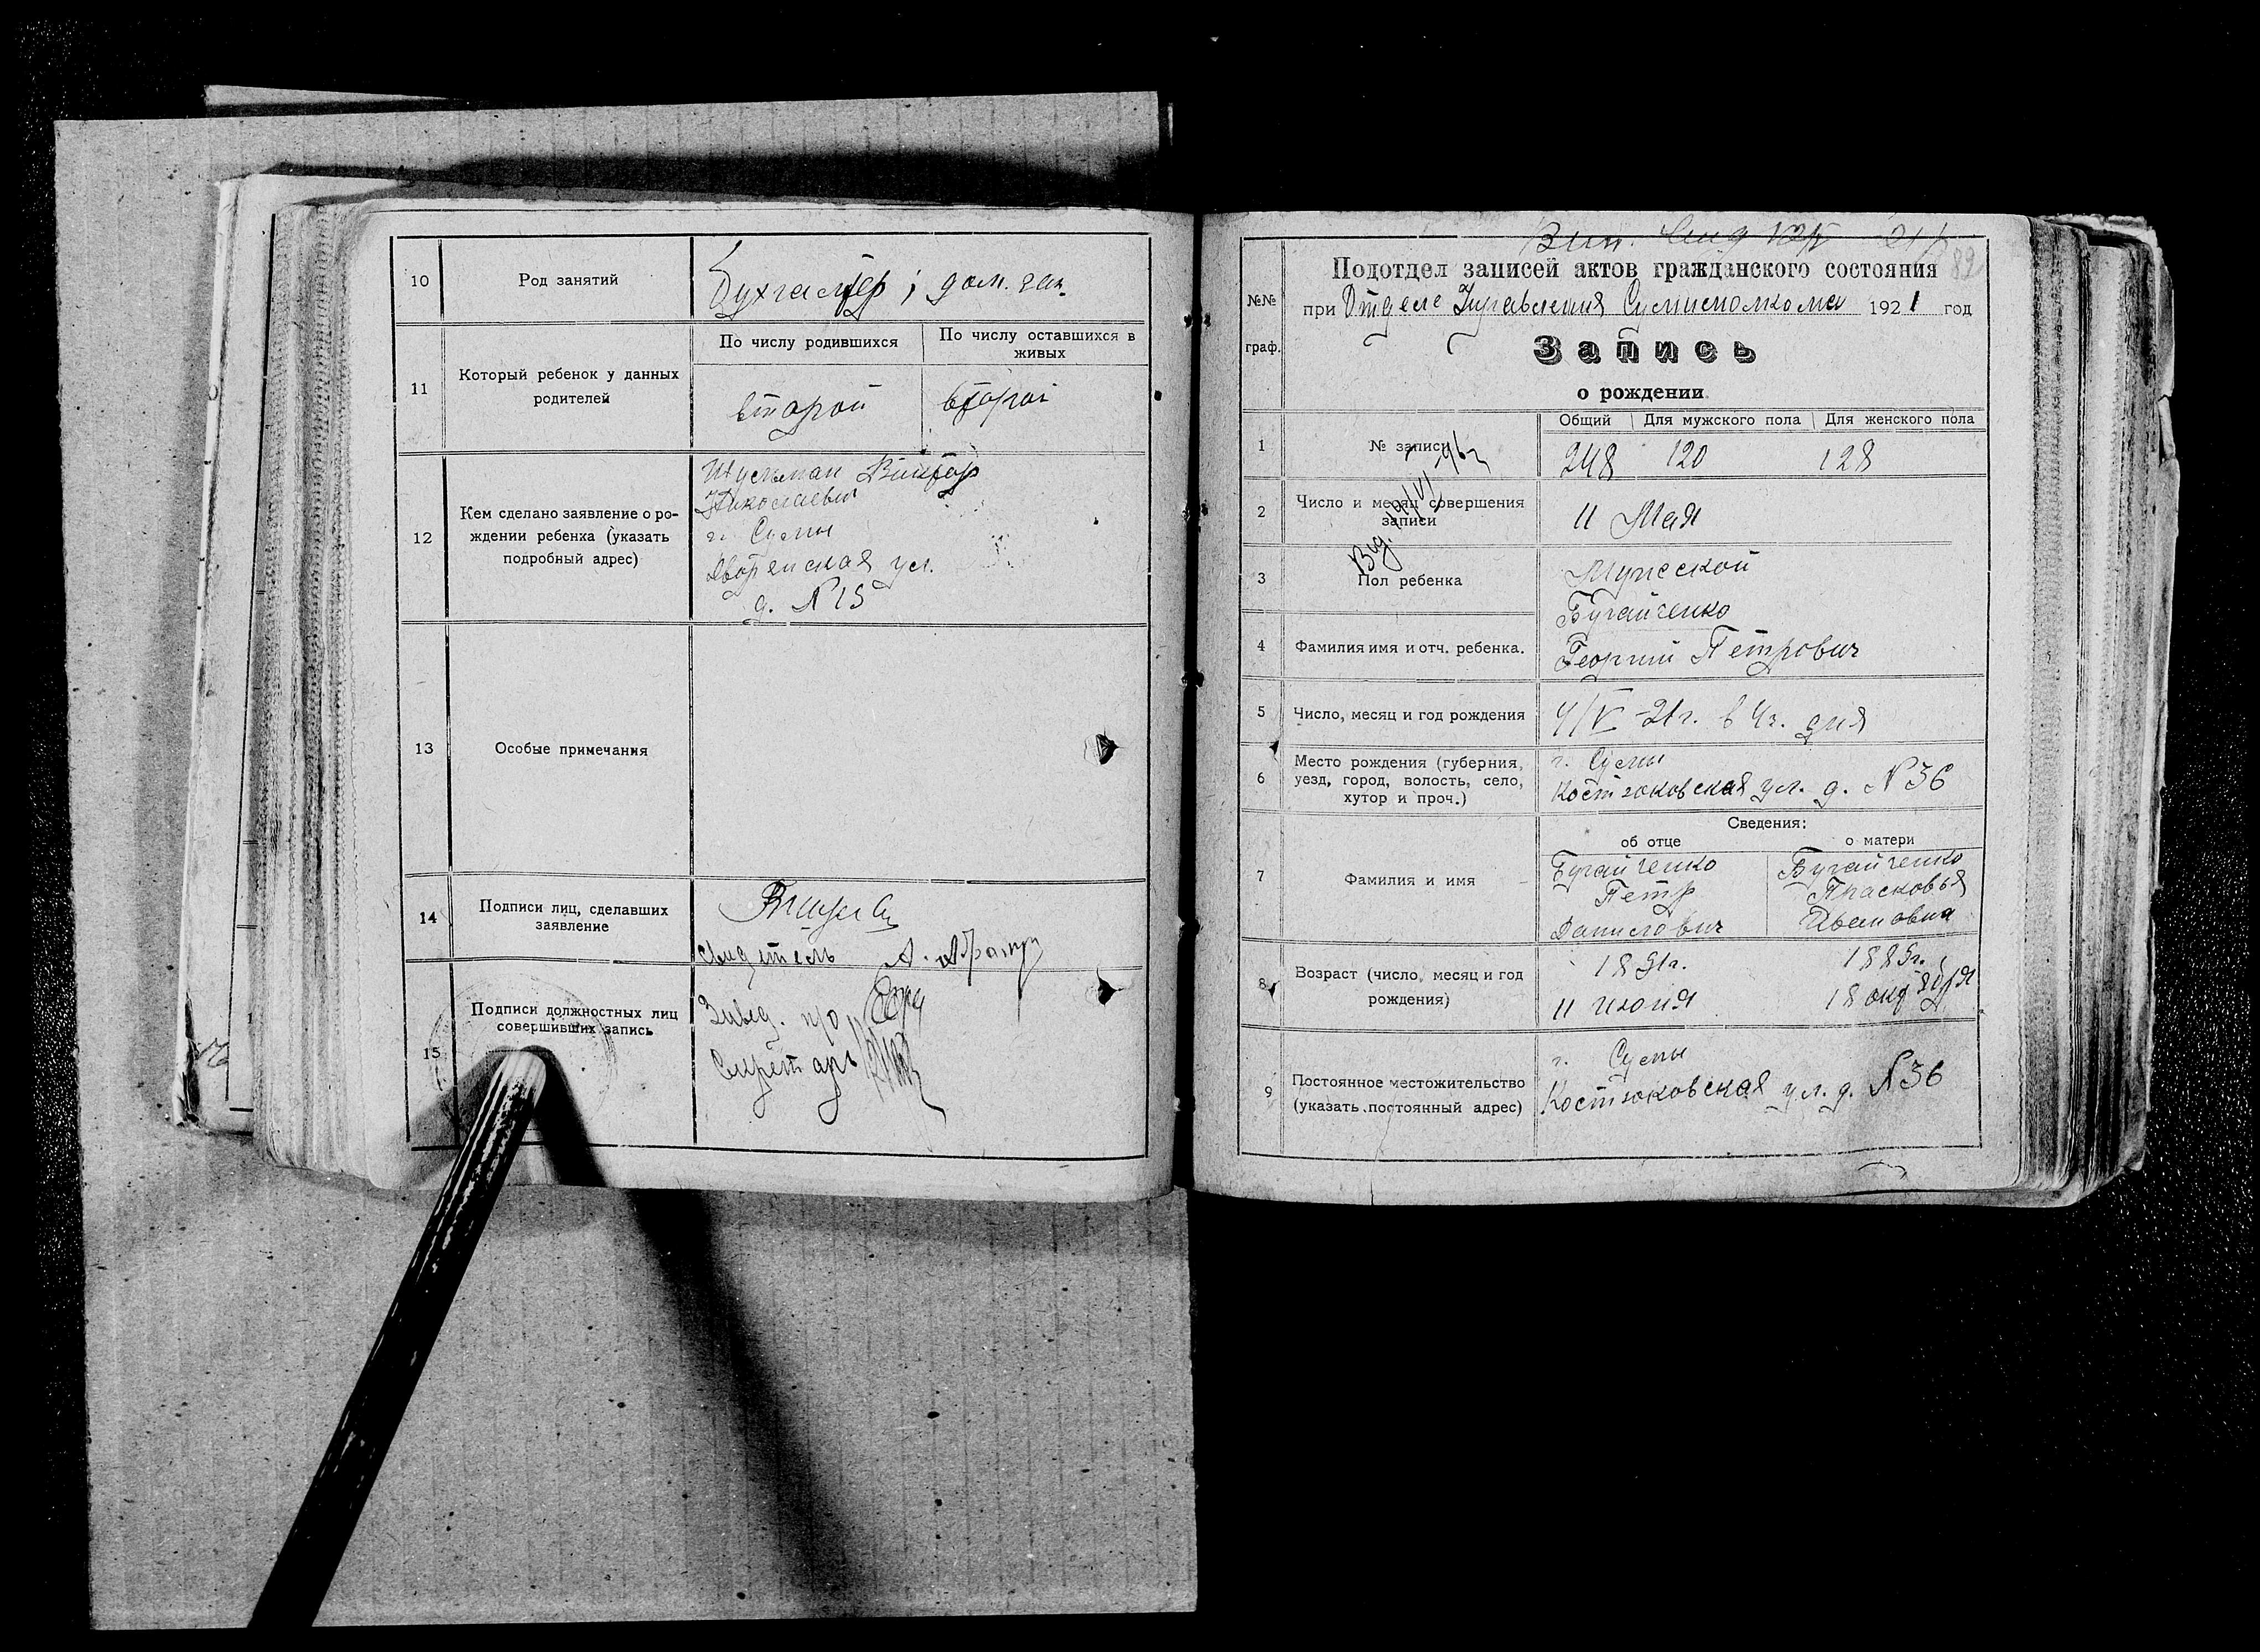 10
Род занятий
бухгалтер; дом. зан.
11
Который ребенок у данных
родителей
По числу родившихся
По числу оставшихся в
живых
второй
второй
12
Кем сделано заявление о ро-
ждении ребенка (указать
подробный адрес)
Шульман Виктор
Николаевич
г. Сумы
Дворянская ул.
д. № 15
13
Особые примечания
14
Подписи лиц, сделавших
заявление
свидетель А.
15
Подписи должностных лиц
совершивших запись
Завед. п/о
Секретарь
89
№№
граф.
Подотдел записей актов гражданского состояния
при Отделе Управления Сумисполкома 1921 год
Запись
о рождении
Общий
Для мужского пола
Для женского пола
1
№ записи
248
120
128
2
Число и месяц совершения
записи
11 Мая
3
Пол ребенка
Мужеской
4
Фамилия имя и отч. ребенка.
Бугайченко
Георгий Петрович
5
Число, месяц и год рождения
4/V-21г. в 4ч. дня
6
Место рождения (губерния,
уезд, город, волость, село,
хутор и проч.)
г. Сумы
Костюковская ул. д. № 36
Сведения:
об отце
о матери
7
Фамилия и имя
Бугайченко
Петр
Данилович
Бугайченко
Прасковья
Ивановна
8
Возраст (число, месяц и год
рождения)
1891г.
11 июня
1889г.
18 октября
9
Постоянное местожительство
(указать постоянный адрес)
г. Сумы
Костюковская ул. д. № 36